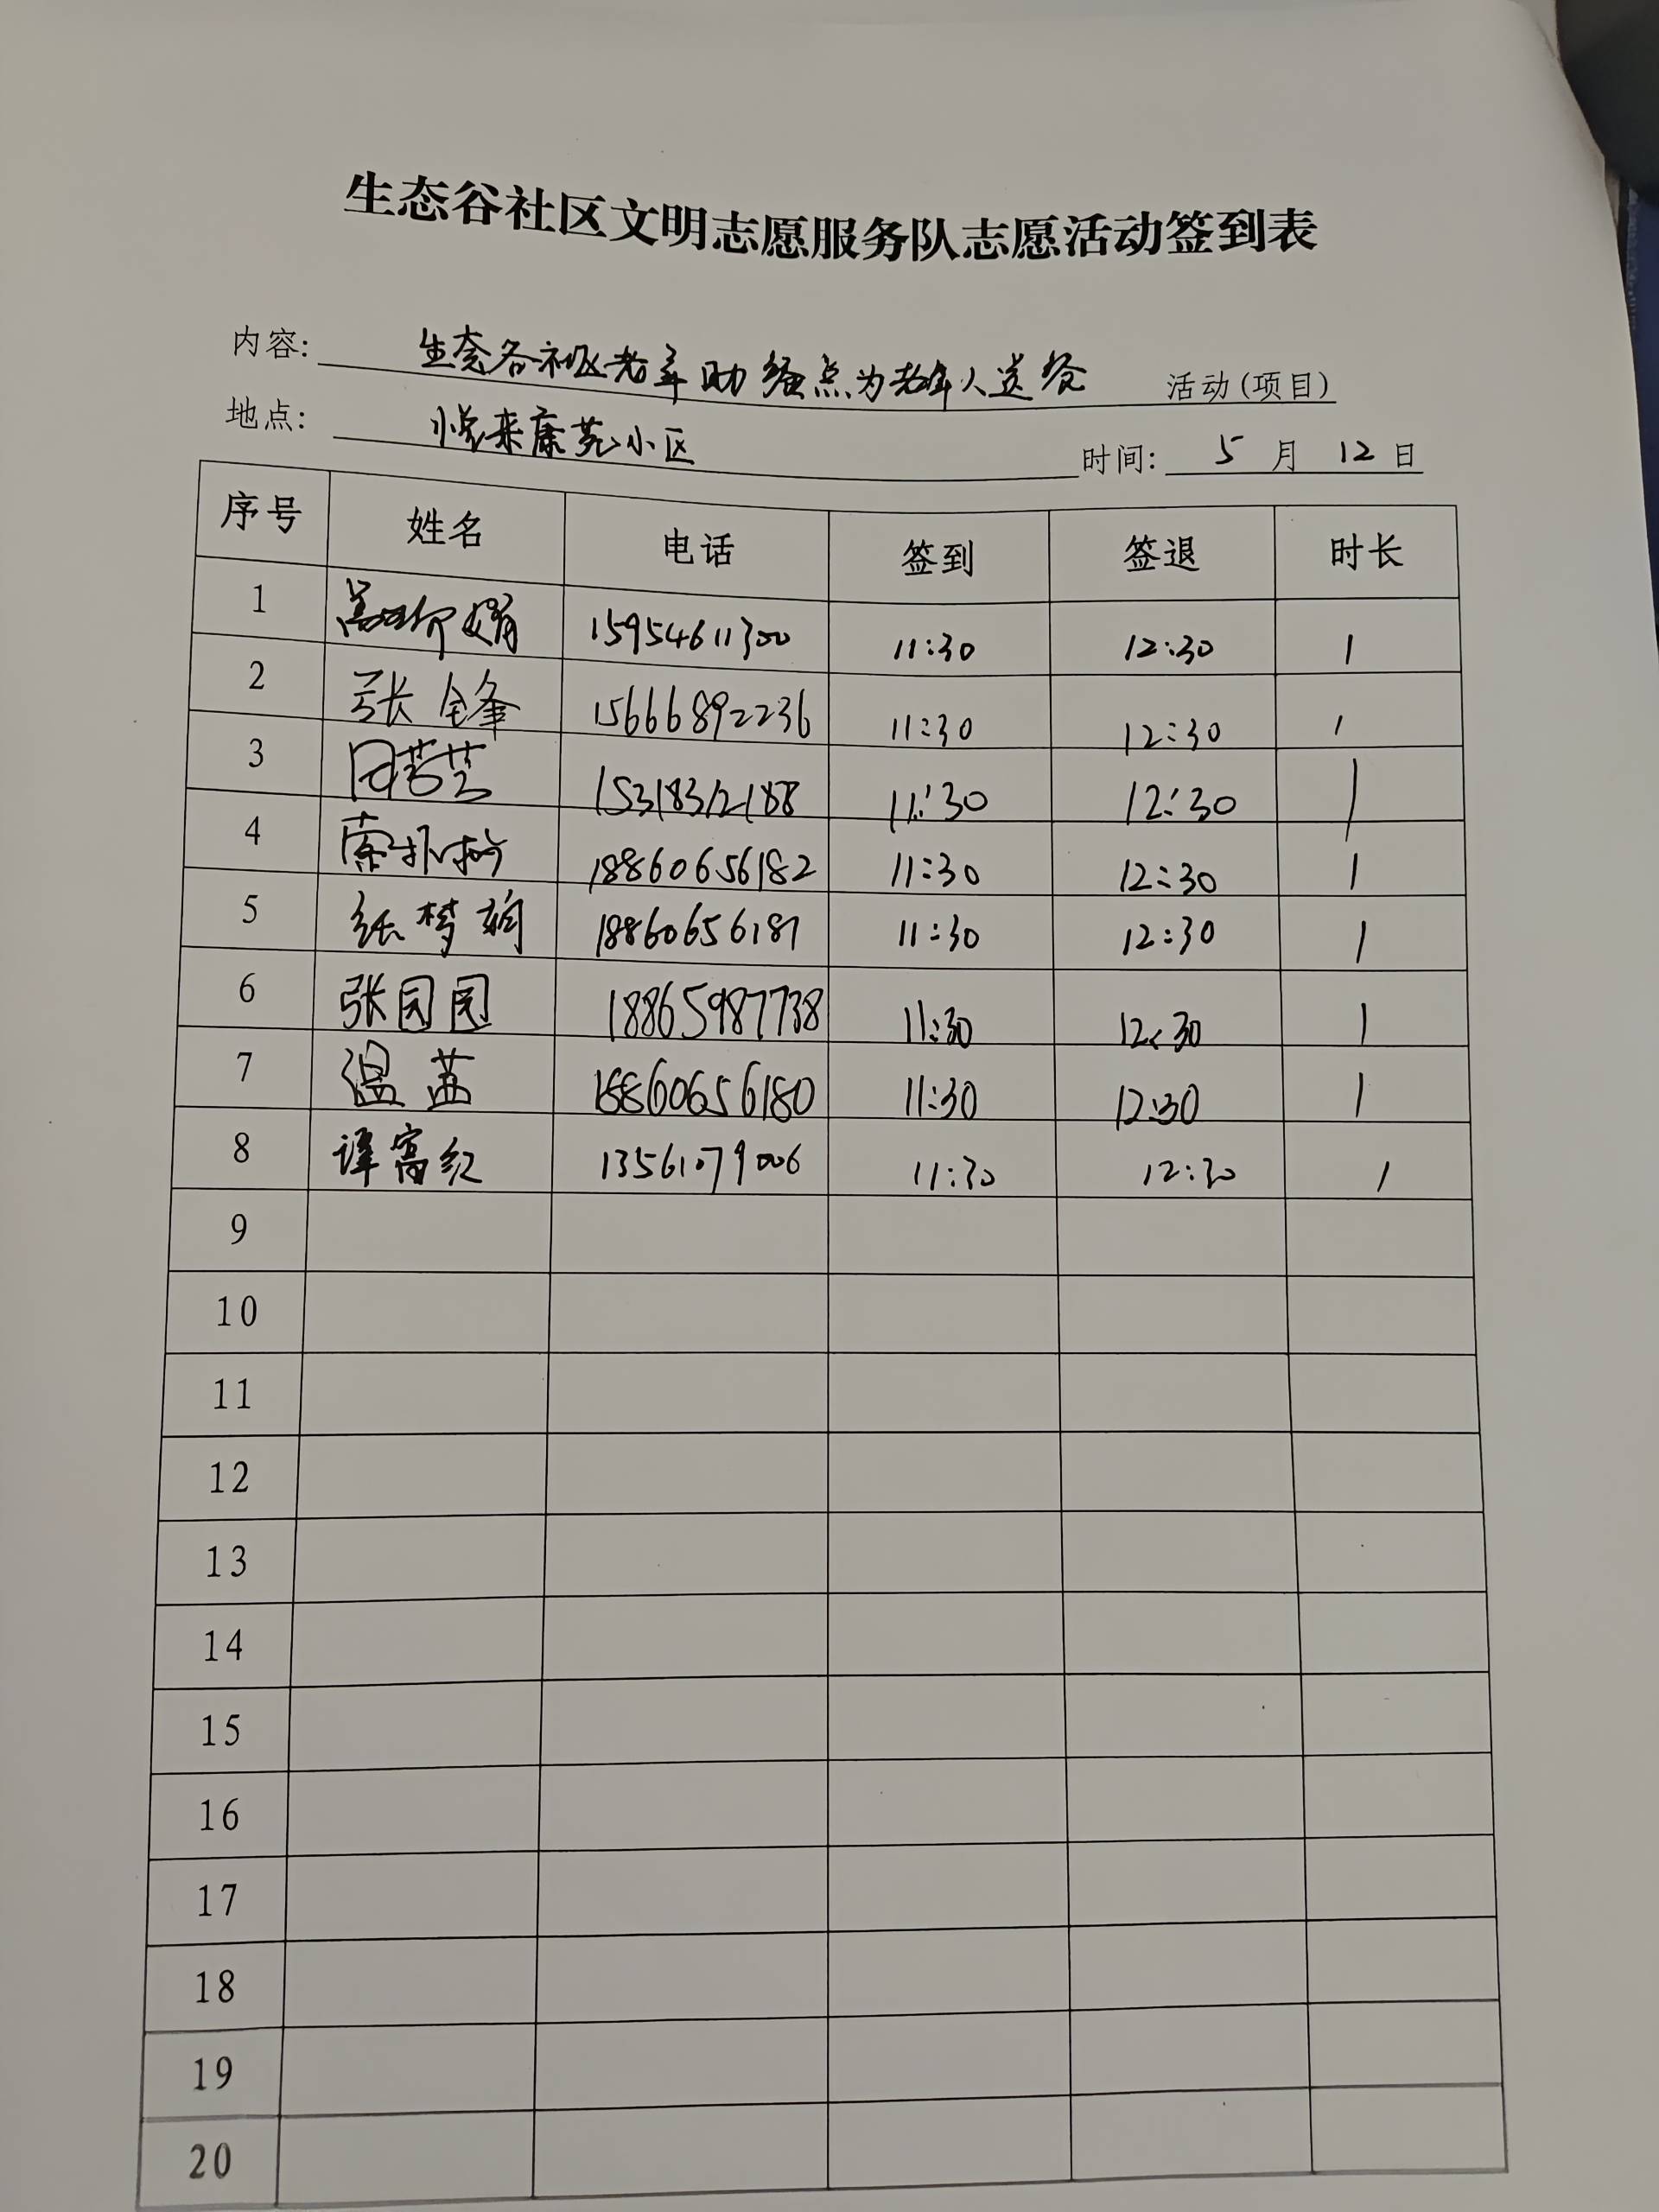 生态谷社区文明志愿服务队志愿活动签到表
内容: 生态谷社区老年助餐点为老年人送餐 活动(项目)
地点: 悦来康苑小区 时间: 5 月 12 日
序号 姓名 电话 签到 签退 时长
1 娟 15954611300 11:30 12:30 1
2 张锋 15666892236 11:30 12:30 1
3 15318312188 11:30 12:30 1
4 18860656182 11:30 12:30 1
5 梦 18860656181 11:30 12:30 1
6 张园园 18865987738 11:30 12:30 1
7 温 18860656180 11:30 12:30 1
8 谭富红 13561079006 11:30 12:30 1
9
10
11
12
13
14
15
16
17
18
19
20